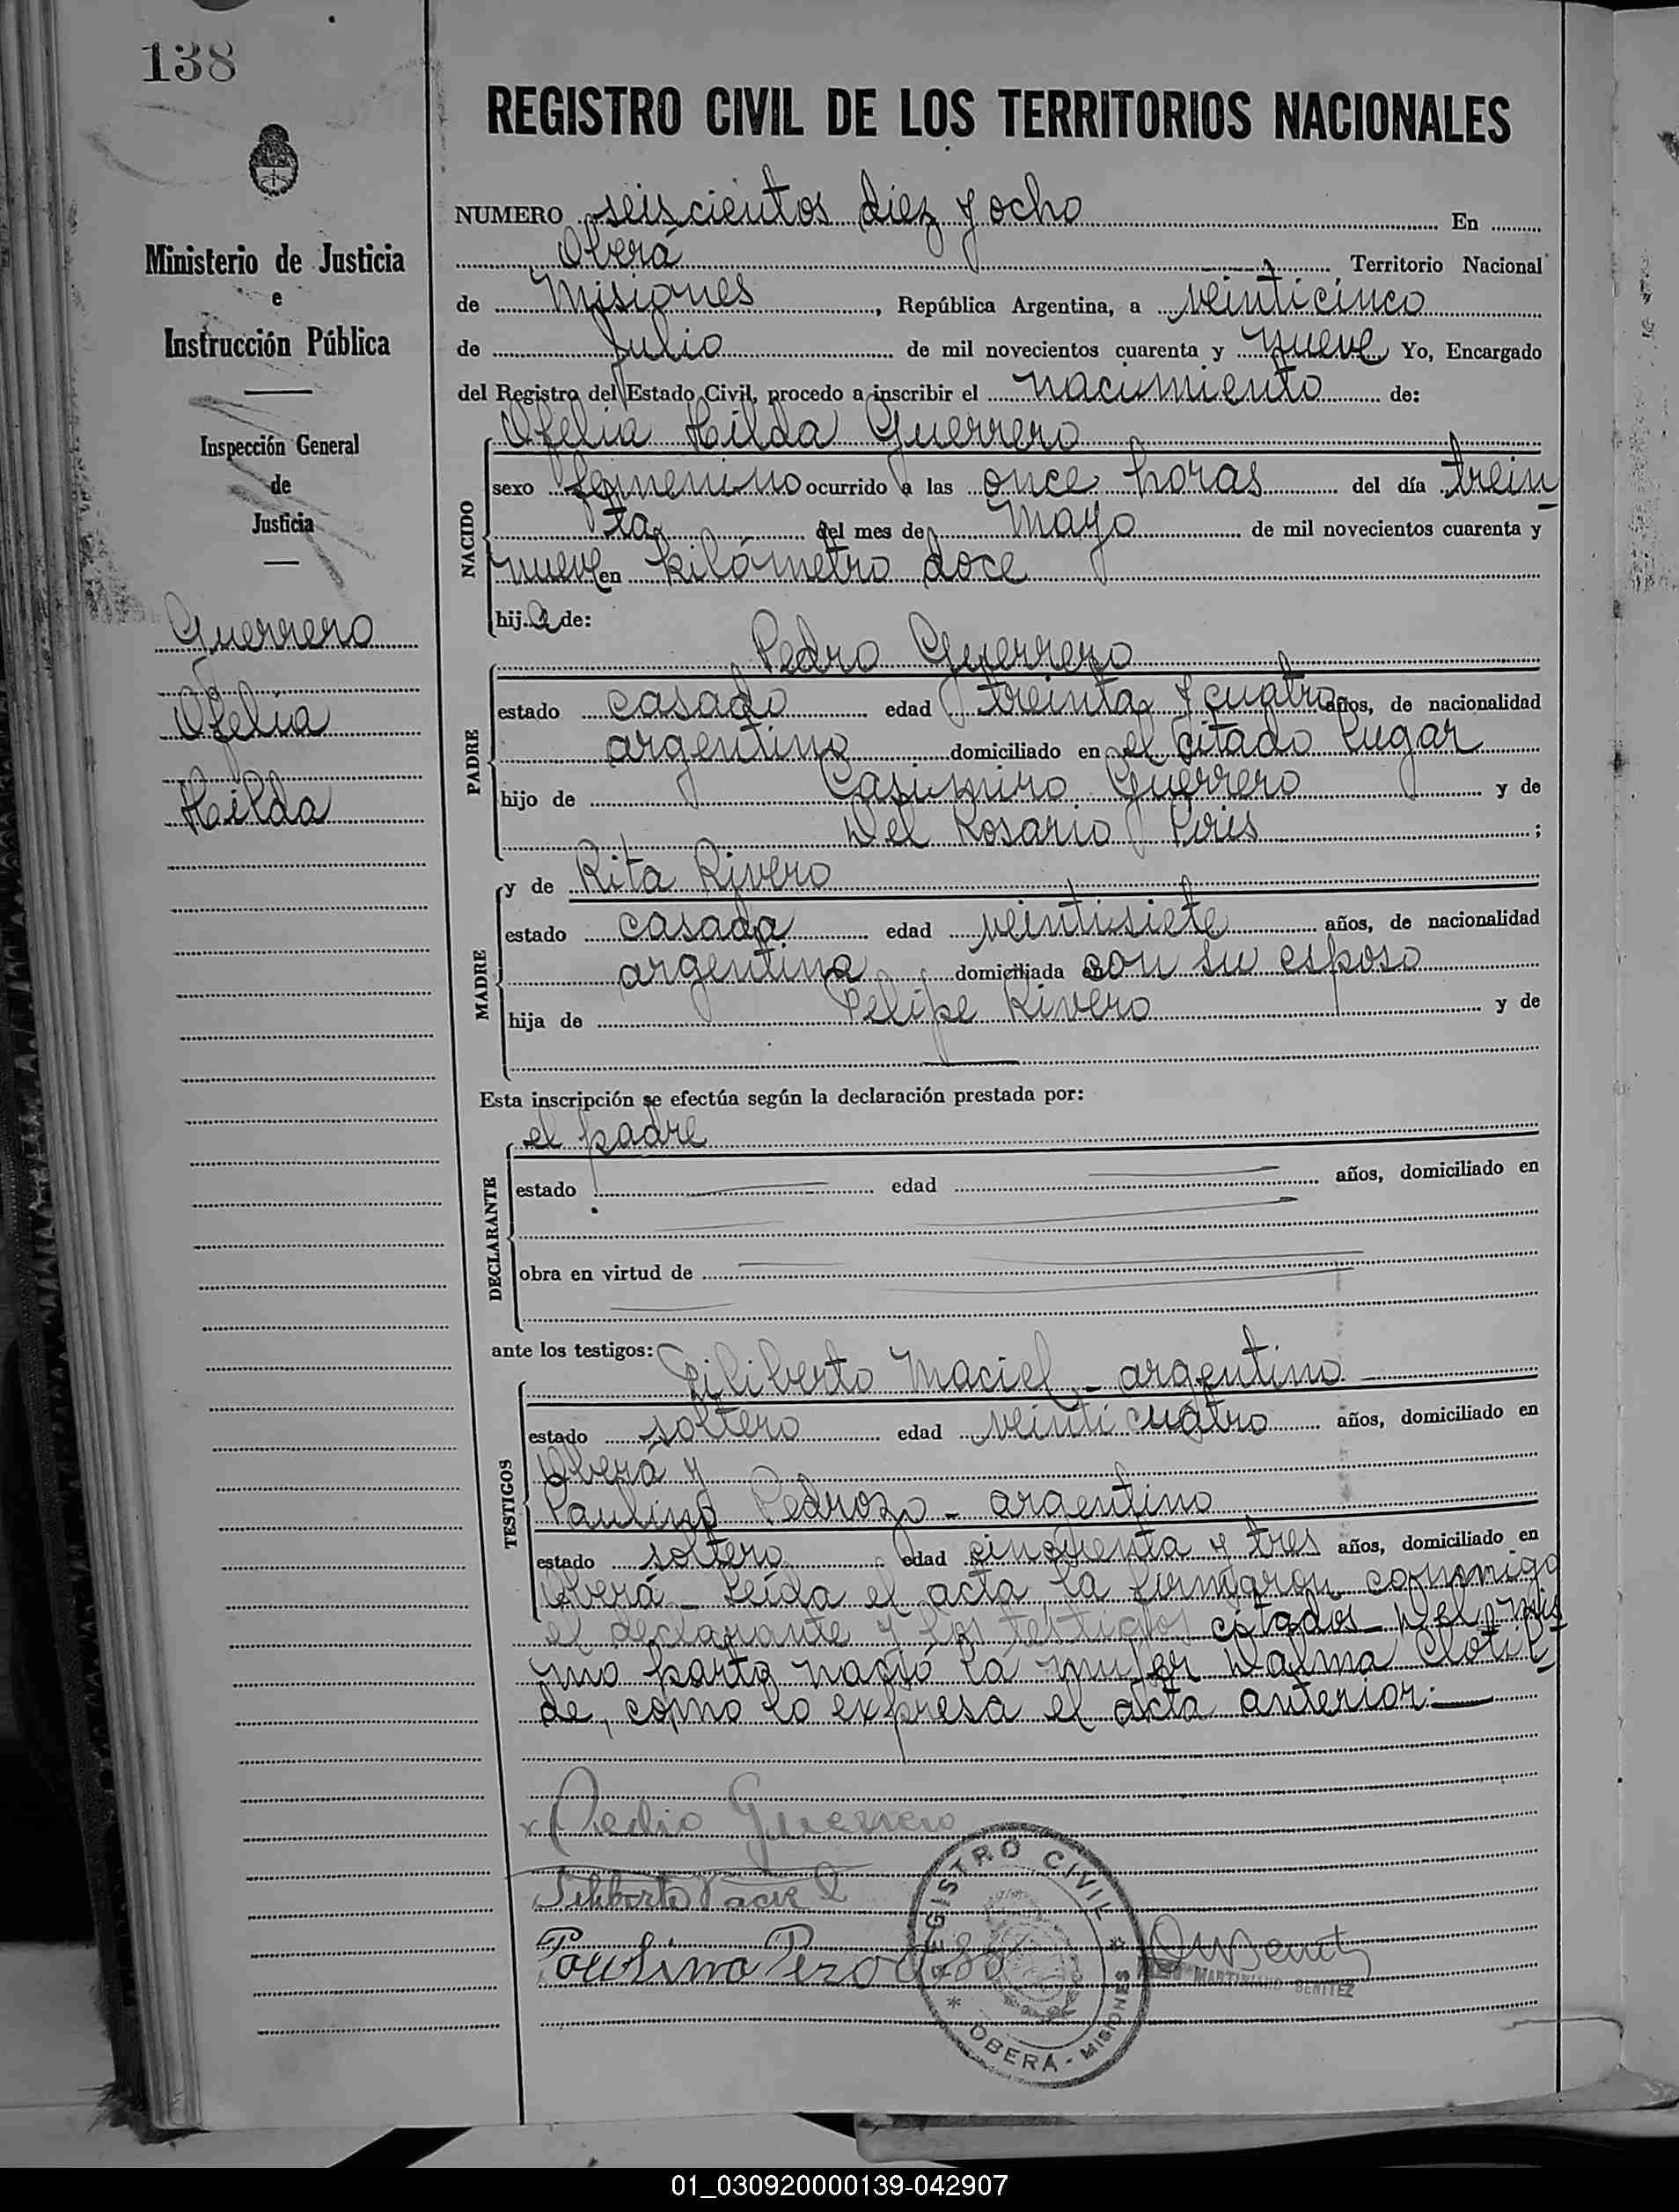 138
Ministerio de Justicia
e
Instrucción Pública
Inspección General
de
Justicia
Guerrero
Ofelia
Hilda
REGISTRO CIVIL DE LOS TERRITORIOS NACIONALES
NUMERO seiscientos diez y ocho En
Oberá Territorio Nacional
de Misiones, República Argentina, a veinticinco
de Julio de mil novecientos cuarenta y nueve Yo, Encargado
del Registro del Estado Civil, procedo a inscribir el nacimiento de:
Ofelia Hilda Guerrero
NACIDO
sexo femenino ocurrido a las once horas del día trein
ta del mes de Mayo de mil novecientos cuarenta y
nueve en kilómetro doce
hija de:
Pedro Guerrero
PADRE
estado casado edad treinta y cuatro años, de nacionalidad
argentino domiciliado en el citado lugar
hijo de Casimiro Guerrero y de
Del Rosario Piris;
y de Rita Rivero
MADRE
estado casada edad veintisiete años, de nacionalidad
argentina domiciliada con su esposo
hija de Felipe Rivero y de
Esta inscripción se efectúa según la declaración prestada por:
el padre
DECLARANTE
estado edad años, domiciliado en
obra en virtud de
ante los testigos:
Filiberto Maciel - argentino
TESTIGOS
estado soltero edad veinticuatro años, domiciliado en
Oberá y
Paulino Pedrozo - argentino
estado soltero edad cincuenta y tres años, domiciliado en
Oberá - Leída el acta, la firmaron conmigo
el declarante y los testigos citados - Del mis
mo parto nació la mujer Dalma Clotil-
de, como lo expresa el acta anterior:
x Pedro Guerrero
Filiberto Maciel
Paulino
REGISTRO CIVIL
* OBERÁ - MISIONES *
MARTINIANO BENITEZ
01_030920000139-042907